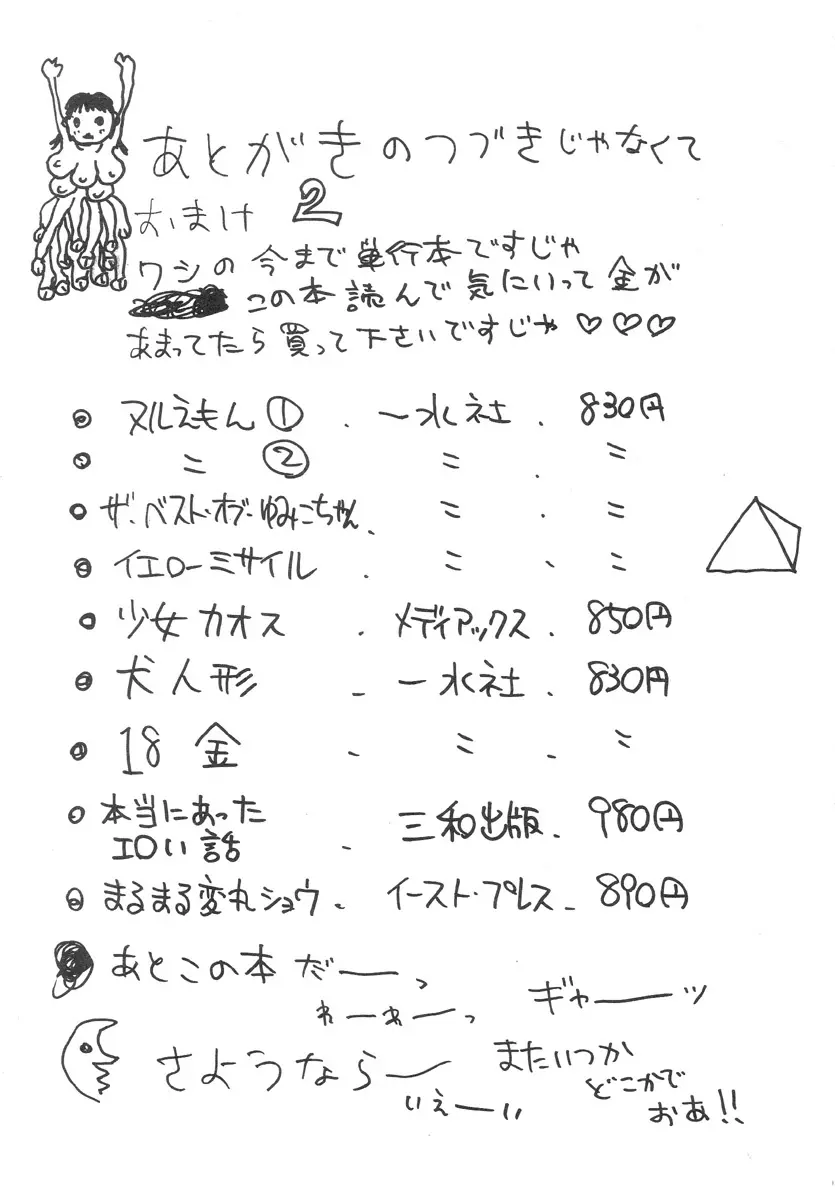 あとがきのつづきじゃなくて
おまけ 2
ワシの今まで単行本ですじゃ
この本読んで気にいって金が
あまってたら買って下さいですじゃ♡♡♡
● ヌルえもん① . 一水社 . 830円
● 〃 ② 〃 . 〃
● ザ・ベスト・オブ・ゆみこちゃん . 〃 . 〃
● イエローミサイル . 〃 . 〃
● 少女カオス . メディアックス . 850円
● 犬人形 . 一水社 . 830円
● 18金 . 〃 . 〃
● 本当にあった
エロい話 . 三和出版 . 980円
● まるまる変丸ショウ . イースト・プレス . 890円
● あとこの本だーっ
わーわーっ
ギャーーッ
さようならー
いえーい
またいつか
どこかで
おあ!!